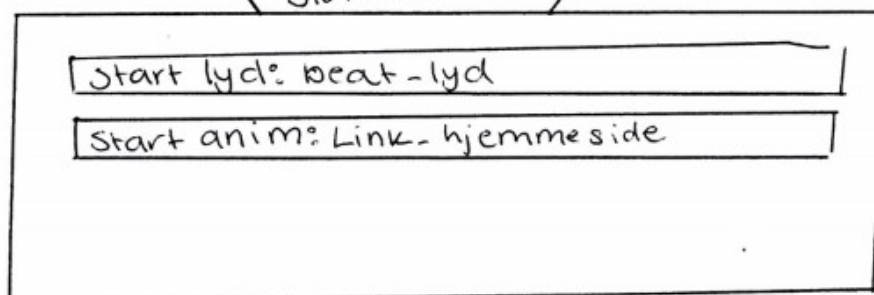 Start lyd: beat-lyd
Start anim: Link-hjemmeside